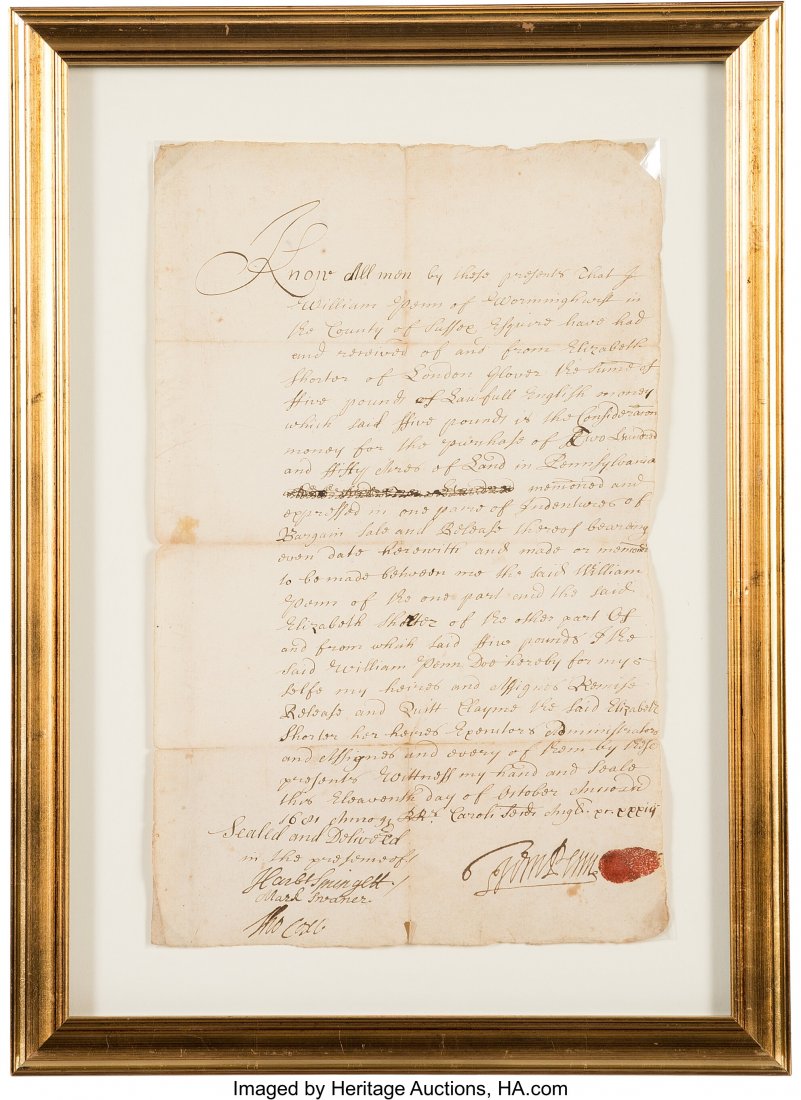 Know All men by these presents That I
William Penn of Worminghurst in
the County of Sussex Esquire have had
and received of and from Elizabeth
Shorter of London Glover the sume of
ffive pounds of Lawfull English money
which said ffive pounds is the Consideracon
money for the purchase of Two hundred
and ffifty Acres of Land in Pennsylvania
menconed and
expressed in one paire of Indentures of
Bargain sale and Release thereof bearing
even date herewith and made or menconed
to be made between me the said William
Penn of the one part and the said
Elizabeth Shorter of the other part Of
and from which said ffive pounds I the
said William Penn Doe hereby for my
selfe my heires and Assignes Remise
Release and Quitt Clayme the said Elizabeth
Shorter her heires Executors administrators
and Assignes and every of them by these
presents Wittness my hand and seale
this Eleaventh day of October
1681 Caroli xxxiij
Sealed and Delivered
in the presence of
Harbt Springett
Mark Swaner
Tho Coxe
Wm Penn
Imaged by Heritage Auctions, HA.com